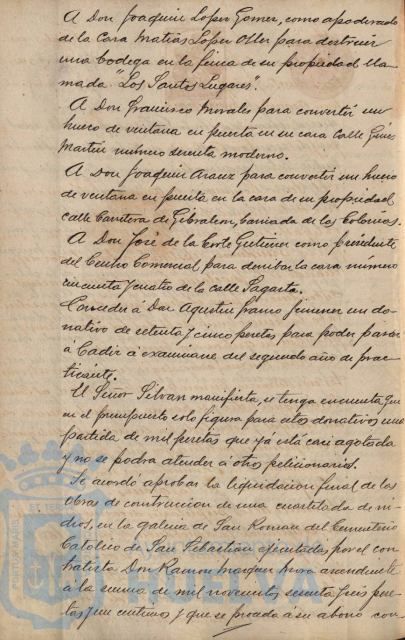 A Don Joaquin Lopez Gomez, como apoderado
de la Casa Matias Lopez Oller para destruir
una bodega en la finca de su propiedad lla-
mada "Los Santos Lugares".
A Don Francisco Morales para convertir un
hueco de ventana en puerta en su casa Calle Ginés
Martin número moderno.
A Don Joaquin Arauz para convertir un hueco
de ventana en puerta en la casa de su propiedad
calle Carretera de Gibraleon, barriada de las Colonias.
A Don José de la Corte Gutierrez como presidente
del Centro Comercial para derribar la casa número
cincuenta y cuatro de la calle Sagasta.
Conceder á Don Agustin Jimenez un do-
nativo de setenta y cinco pesetas para poder pasar
á Cadiz á examinarse del segundo año de prac-
ticante.
El Señor Silvan manifiesta, se tenga en cuenta que
en el presupuesto solo figura para estos donativos una
partida de mil pesetas que yá está casi agotada
y no se podra atender á otros peticionarios.
Se acordó aprobar la liquidacion final de las
Obras de construccion de una cuartelada de ni-
chos, en la galeria de San Roman del Cementerio
Catolico de San Sebastian ejecutadas por el con-
tratista Don Ramon Marquez ascendente
á la suma de mil novecientas sesenta y seis pese-
tas y un centimos y que se proceda á su abono con